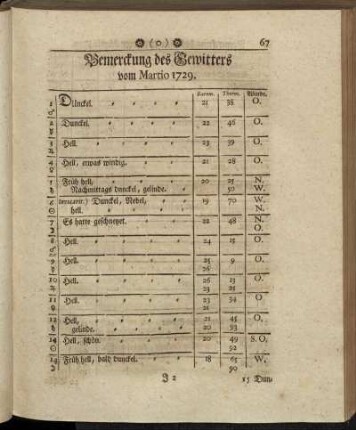 (o) 67
Bemerckung des Gewitters
vom Martio 1729.
Winde.
1 Dunckel. 21 O.
2 Dunckel. 22 46 O.
3 Hell. 23 39 O.
4 Hell, etwas windig. 21 28 O.
5 Früh hell, 20 25 N.
Nachmittags dunckel, gelinde. 50 W.
6 Dunckel, Nebel, 19 70 W.
hell. N.
7 Es hatte geschneyet. 22 48 N.
O.
8 Hell. 24 15 O.
9 Hell. 25 9 O.
26
10 Hell. 26 15 O.
23 25
11 Hell. 21 54 O
23
12 Hell, 21 45 O.
gelinde. 20 93
Hell, schön. 20 49 S. O.
92
14 Früh hell, bald dunckel. 18 65 W.
90
J 2 15 Dun-